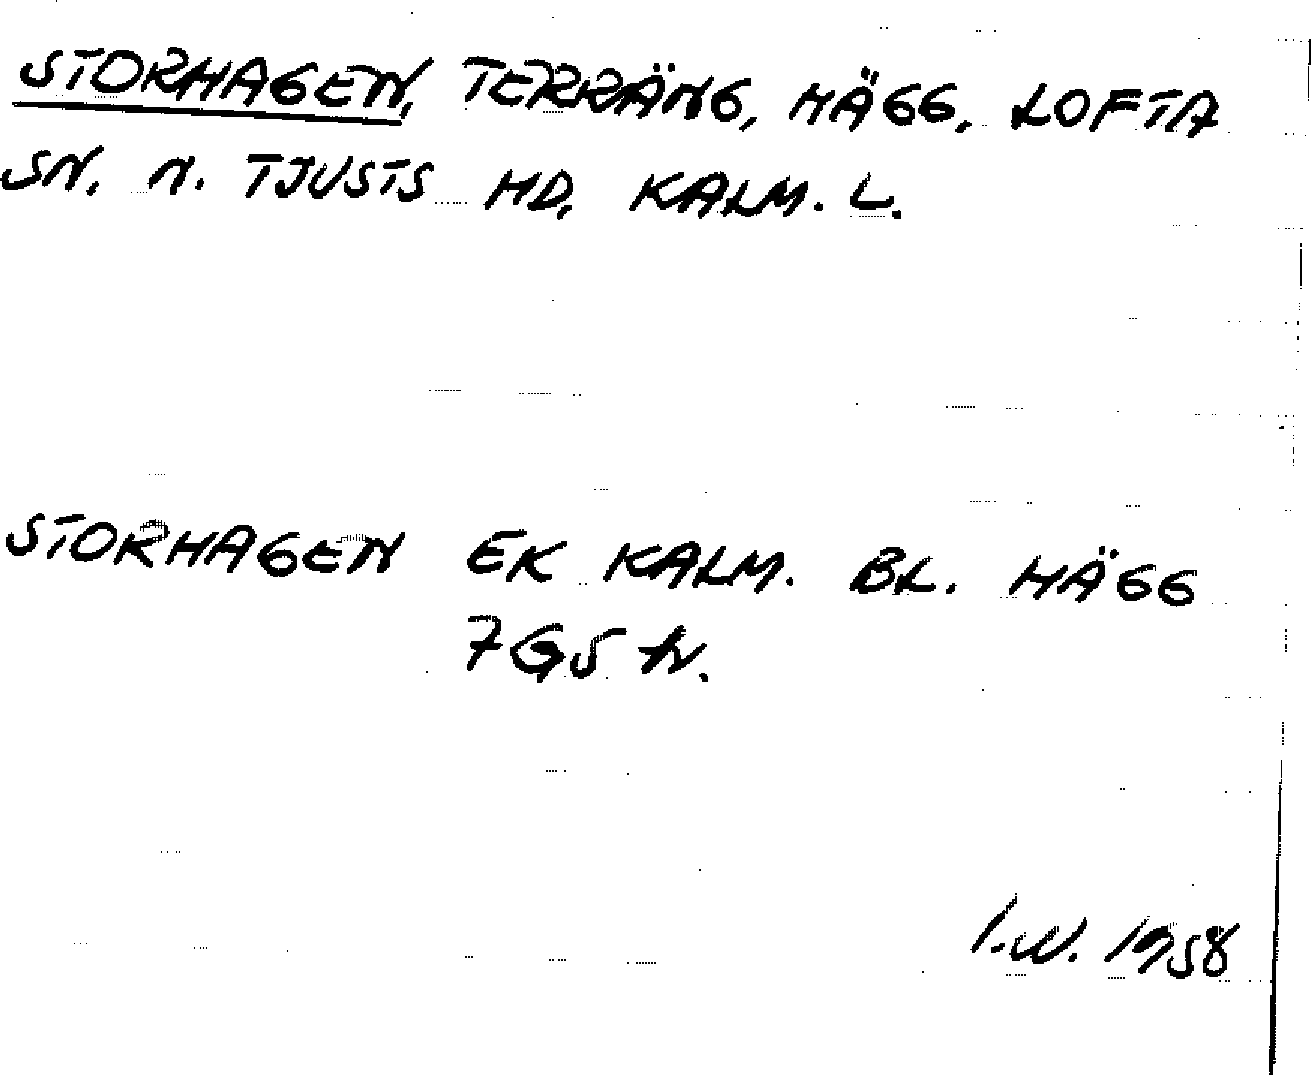 STORHAGEN, TERRÄNG, HÄGG, LOFTA
SN. N. TJUSTS HD, KALM. L.
STORHAGEN EK KALM. BL. HÄGG
7G5 tv.
I.W. 1958